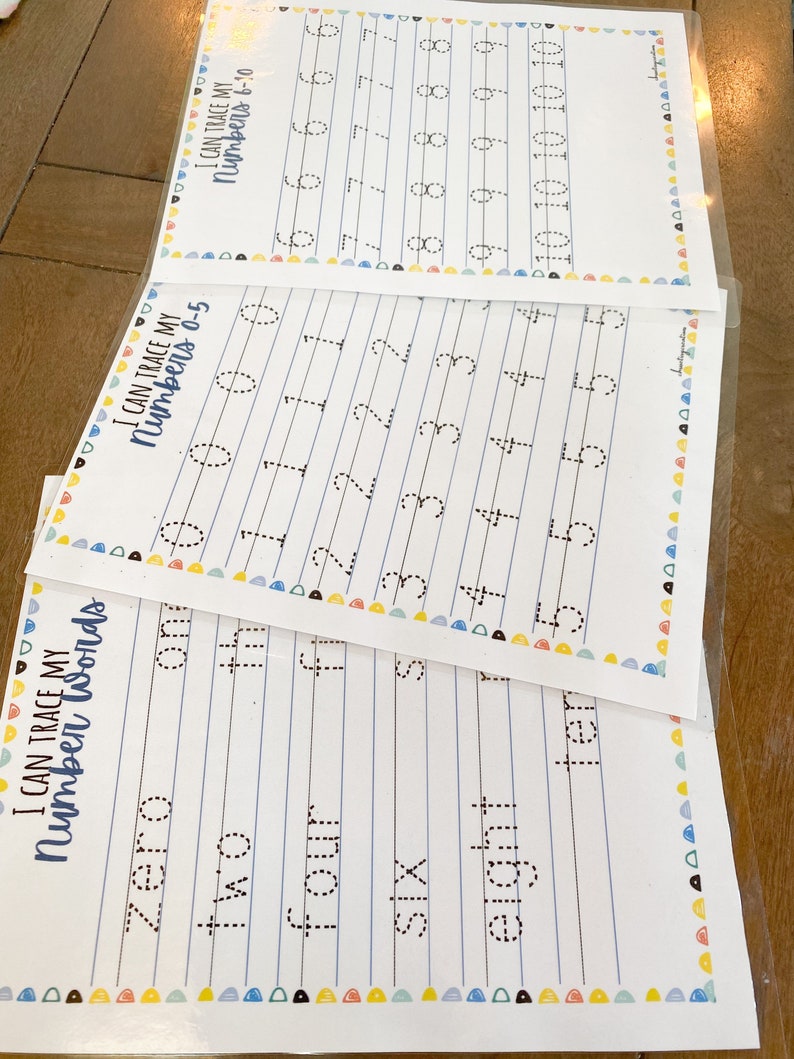 I CAN TRACE MY
Numbers 6-10
6 6 6 6 6
7 7 7 7 7
8 8 8 8 8
9 9 9 9 9
10 10 10 10 10
I CAN TRACE MY
Numbers 0-5
0 0 0 0
1 1 1 1
2 2 2 2
3 3 3 3
4 4 4 4 4
5 5 5 5
I CAN TRACE MY
Number Words
zero one
two th
four fi
six s
eight
ten